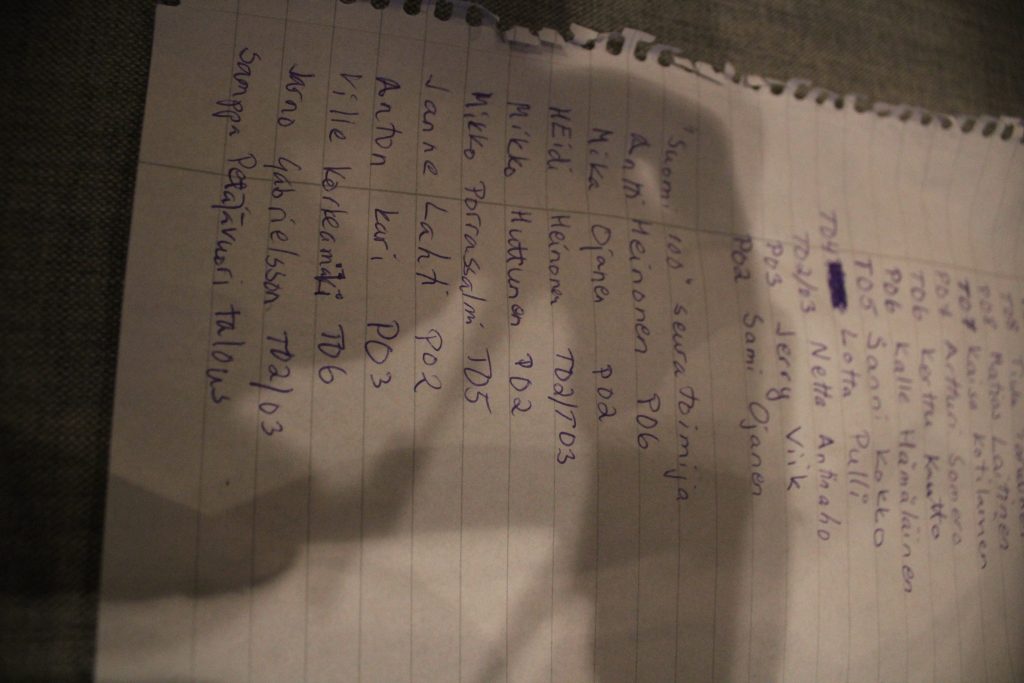 T08
P08 Matias Laitinen
T07 Kaisa Kotilainen
P07 Artturi Somero
T06 Kerttu Kautto
P06 Kalle Hämäläinen
T05 Sanni Kokko
T04 Lotta Pulli
T02/03 Netta Anttiaho
P03 Jerry Viik
P02 Sami Ojanen
"Suomi 100" seuratoimija
Antti Heinonen P06
Mika Ojanen P02
HEidi Heinonen T02/T03
Mikko Huttunen P02
Mikko Porrassalmi T05
Janne Lahti P02
Anton Kari P03
Ville Korkeamäki T06
Jarno Gabrielsson T02/03
Samppa Petäjävuori talous